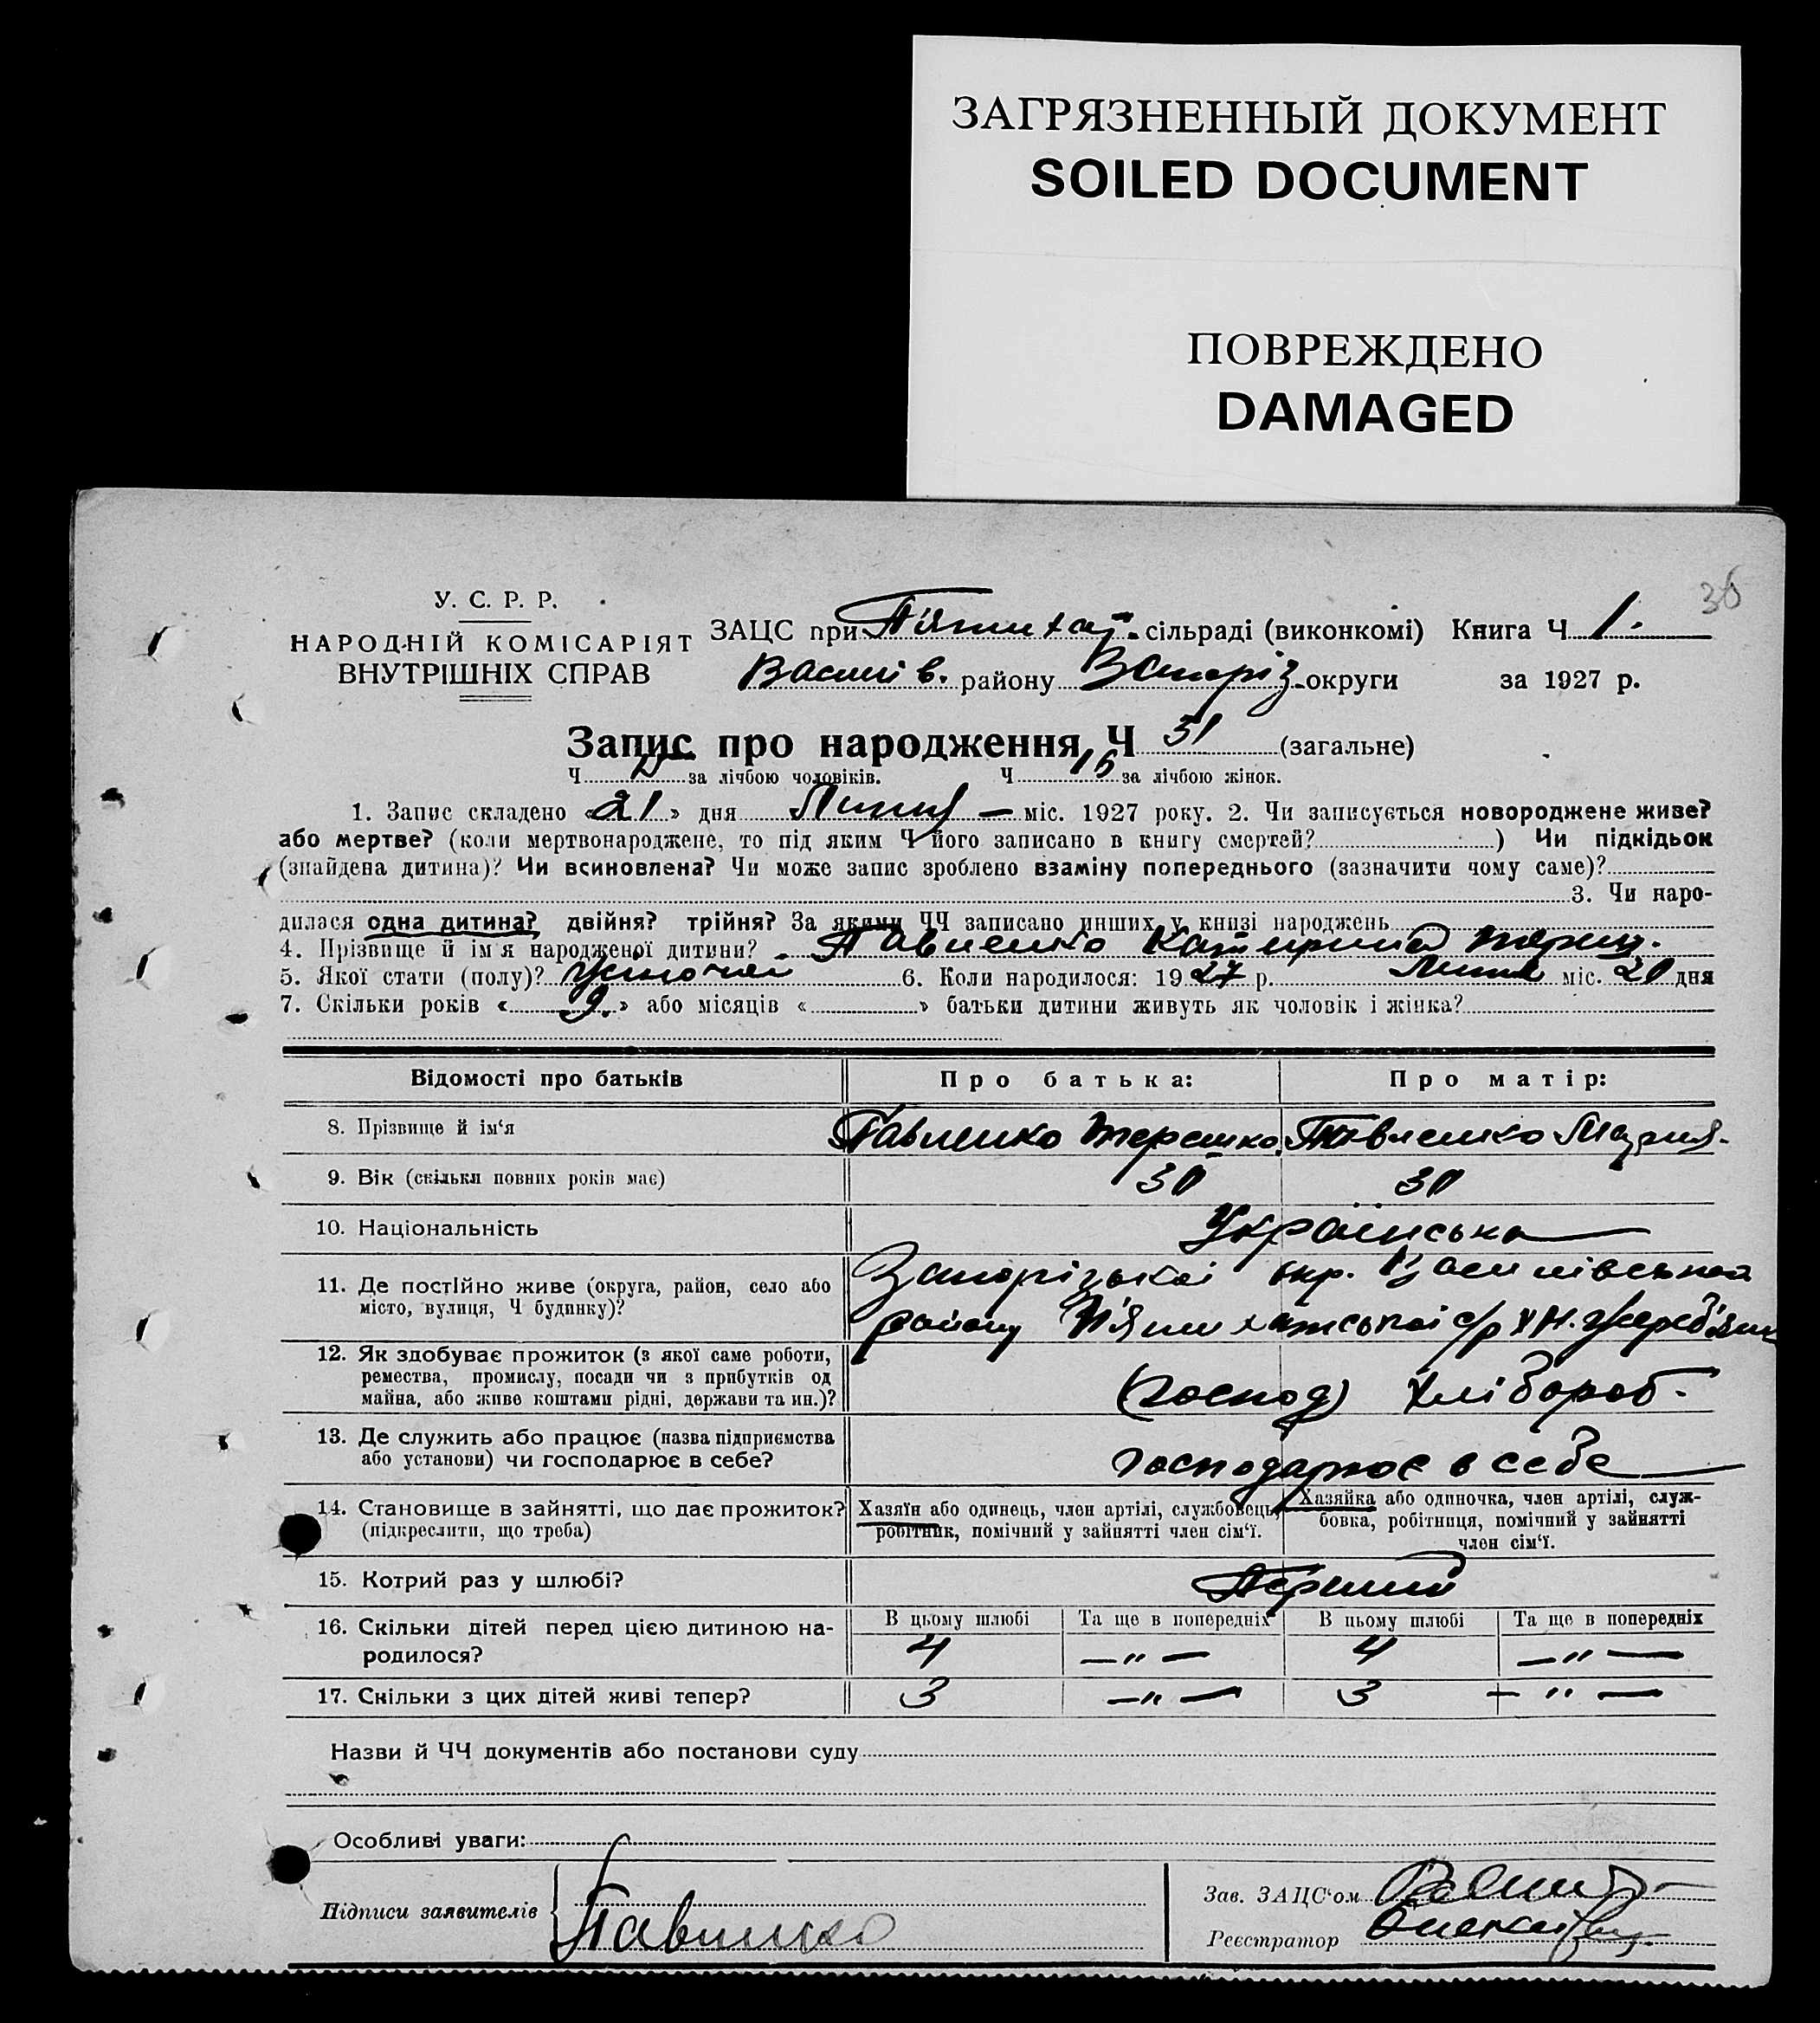 ЗАГРЯЗНЕННЫЙ ДОКУМЕНТ
SOILED DOCUMENT
ПОВРЕЖДЕНО
DAMAGED
36
У. С. Р. Р.
НАРОДНІЙ КОМІСАРІЯТ
ВНУТРІШНІХ СПРАВ
ЗАЦС при Пятихат. сільраді (виконкомі) Книга Ч 1.
Василів. району Запоріз. округи за 1927 р.
Запис про народження Ч 31 (загальне)
Ч за лічбою чоловіків. Ч 15 за лічбою жінок.
1. Запис складено «21» дня Липня міс. 1927 року. 2. Чи записується новороджене живе?
або мертве? (коли мертвонароджене, то під яким Ч його записано в книгу смертей? ) Чи підкідьок
(знайдена дитина)? Чи всиновлена? Чи може запис зроблено взаміну попереднього (зазначити чому саме)?
3. Чи наро-
дилася одна дитина? двійня? трійня? За якими ЧЧ записано инших у книзі народжень
4. Прізвище й ім'я народженої дитини? Павленко Катерина
5. Якої стати (полу)? Жіночої 6. Коли народилося: 1927 р. Липня міс. 20 дня
7. Скільки років «9.» або місяців « » батьки дитини живуть як чоловік і жінка?
Відомості про батьків Про батька: Про матір:
8. Прізвище й ім'я Павленко Терешко Павленко Мария
9. Вік (скільки повних років має) 30 30
10. Національність Українська
11. Де постійно живе (округа, район, село або Запорізької окр. Василівського
місто, вулиця, Ч будинку)? району П'ятихатської с/р
12. Як здобуває прожиток (з якої саме роботи,
ремества, промислу, посади чи з прибутків од
майна, або живе коштами рідні, держави та ин.)? (господ) хлібороб.
13. Де служить або працює (назва підприємства
або установи) чи господарює в себе? господарює в себе
14. Становище в зайнятті, що дає прожиток? Хазяїн або одинець, член артілі, службовець, Хазяйка або одиночка, член артілі, служ-
(підкреслити, що треба) робітник, помічний у зайнятті член сім'ї. бовка, робітниця, помічний у зайнятті
член сім'ї.
15. Котрий раз у шлюбі? Перший
В цьому шлюбі Та ще в попередніх В цьому шлюбі Та ще в попередніх
16. Скільки дітей перед цією дитиною на-
родилося? 4 —"— 4 —"—
17. Скільки з цих дітей живі тепер? 3 —"— 3 —"—
Назви й ЧЧ документів або постанови суду
Особливі уваги:
Підписи заявителів Павленко
Зав. ЗАЦС'ом
Реєстратор